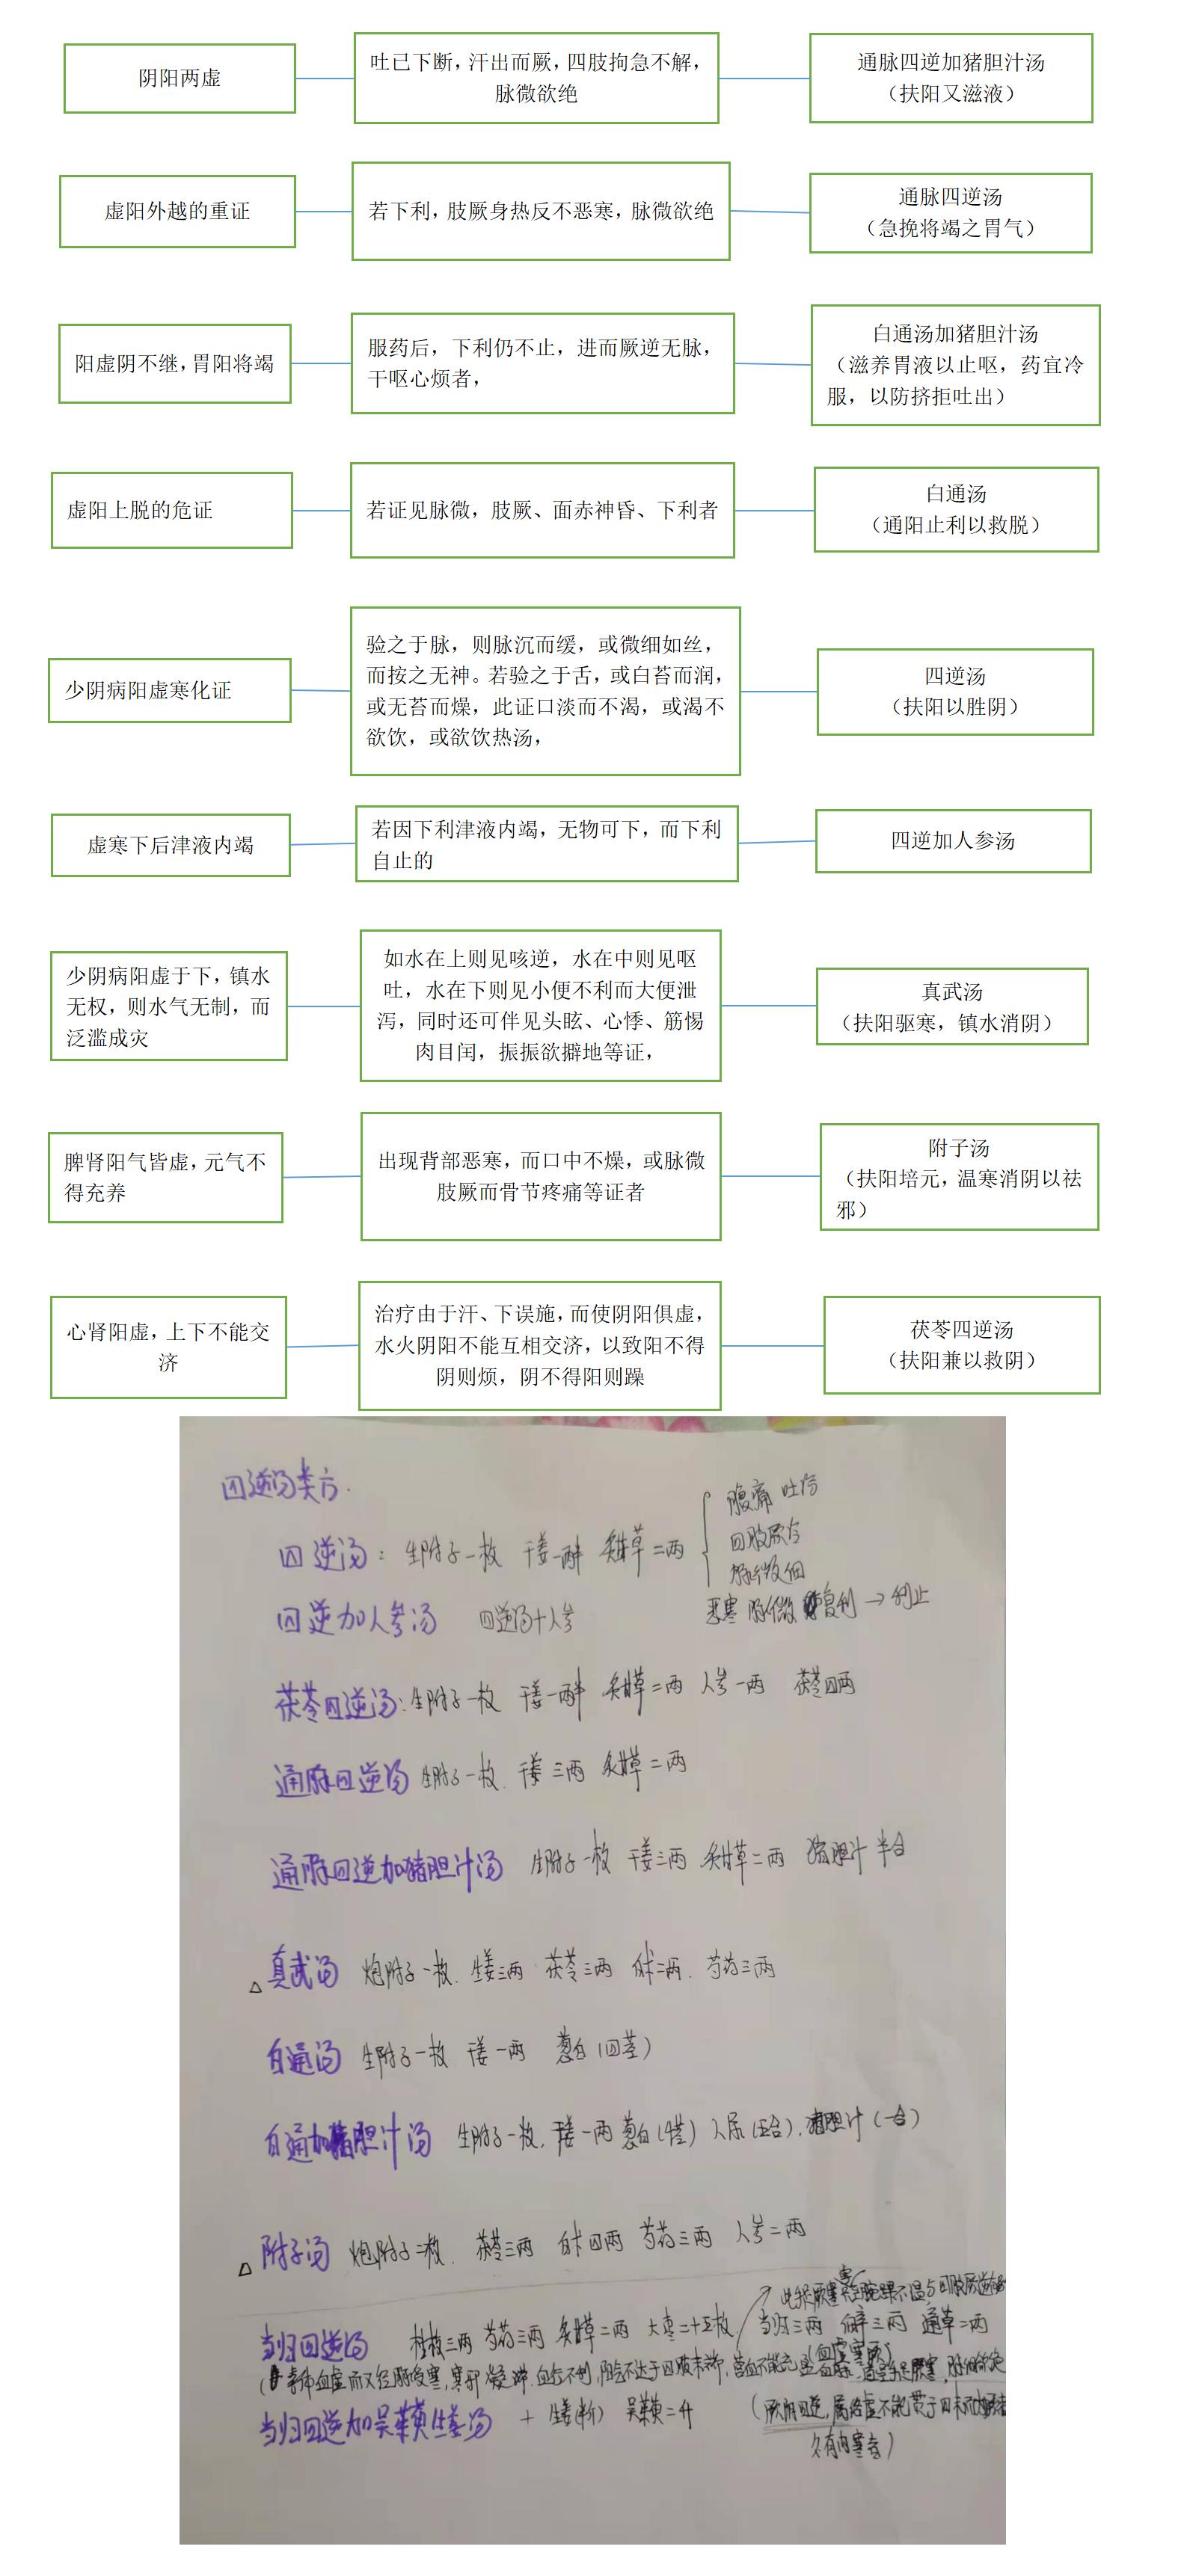 阴阳两虚
吐已下断，汗出而厥，四肢拘急不解，
脉微欲绝
通脉四逆加猪胆汁汤
（扶阳又滋液）
虚阳外越的重证
若下利，肢厥身热反不恶寒，脉微欲绝
通脉四逆汤
（急挽将竭之胃气）
阳虚阴不继，胃阳将竭
服药后，下利仍不止，进而厥逆无脉，
干呕心烦者，
白通汤加猪胆汁汤
（滋养胃液以止呕，药宜冷
服，以防挤拒吐出）
虚阳上脱的危证
若证见脉微，肢厥、面赤神昏、下利者
白通汤
（通阳止利以救脱）
少阴病阳虚寒化证
验之于脉，则脉沉而缓，或微细如丝，
而按之无神。若验之于舌，或白苔而润，
或无苔而燥，此证口淡而不渴，或渴不
欲饮，或欲饮热汤，
四逆汤
（扶阳以胜阴）
虚寒下后津液内竭
若因下利津液内竭，无物可下，而下利
自止的
四逆加人参汤
少阴病阳虚于下，镇水
无权，则水气无制，而
泛滥成灾
如水在上则见咳逆，水在中则见呕
吐，水在下则见小便不利而大便泄
泻，同时还可伴见头眩、心悸、筋惕
肉目闰，振振欲擗地等证，
真武汤
（扶阳驱寒，镇水消阴）
脾肾阳气皆虚，元气不
得充养
出现背部恶寒，而口中不燥，或脉微
肢厥而骨节疼痛等证者
附子汤
（扶阳培元，温寒消阴以祛
邪）
心肾阳虚，上下不能交
济
治疗由于汗、下误施，而使阴阳俱虚，
水火阴阳不能互相交济，以致阳不得
阴则烦，阴不得阳则躁
茯苓四逆汤
（扶阳兼以救阴）
四逆汤类方.
腹痛 吐泻
四逆汤：生附子一枚 干姜一两半 炙甘草二两
四肢厥冷
脉微细
四逆加人参汤 四逆汤+人参
恶寒 脉微 复利→利止
茯苓四逆汤：生附子一枚 干姜一两半 炙甘草二两 人参一两 茯苓四两
通脉四逆汤 生附子一枚. 干姜三两 炙甘草二两
通脉四逆加猪胆汁汤 生附子一枚 干姜三两 炙甘草二两 猪胆汁半合
△真武汤 炮附子一枚. 生姜三两 茯苓三两 白术二两. 芍药三两
白通汤 生附子一枚 干姜一两 葱白（四茎）
白通加猪胆汁汤 生附子一枚. 干姜一两 葱白（4茎）人尿（五合）. 猪胆汁（一合）
△附子汤 炮附子二枚. 茯苓三两 白术四两 芍药三两 人参二两
当归四逆汤 桂枝三两 芍药三两 炙甘草二两 大枣二十五枚 当归三两 细辛三两 通草二两
（血虚寒厥）
当归四逆加吴茱萸生姜汤 + 生姜（半斤） 吴茱萸二升
久有内寒者）